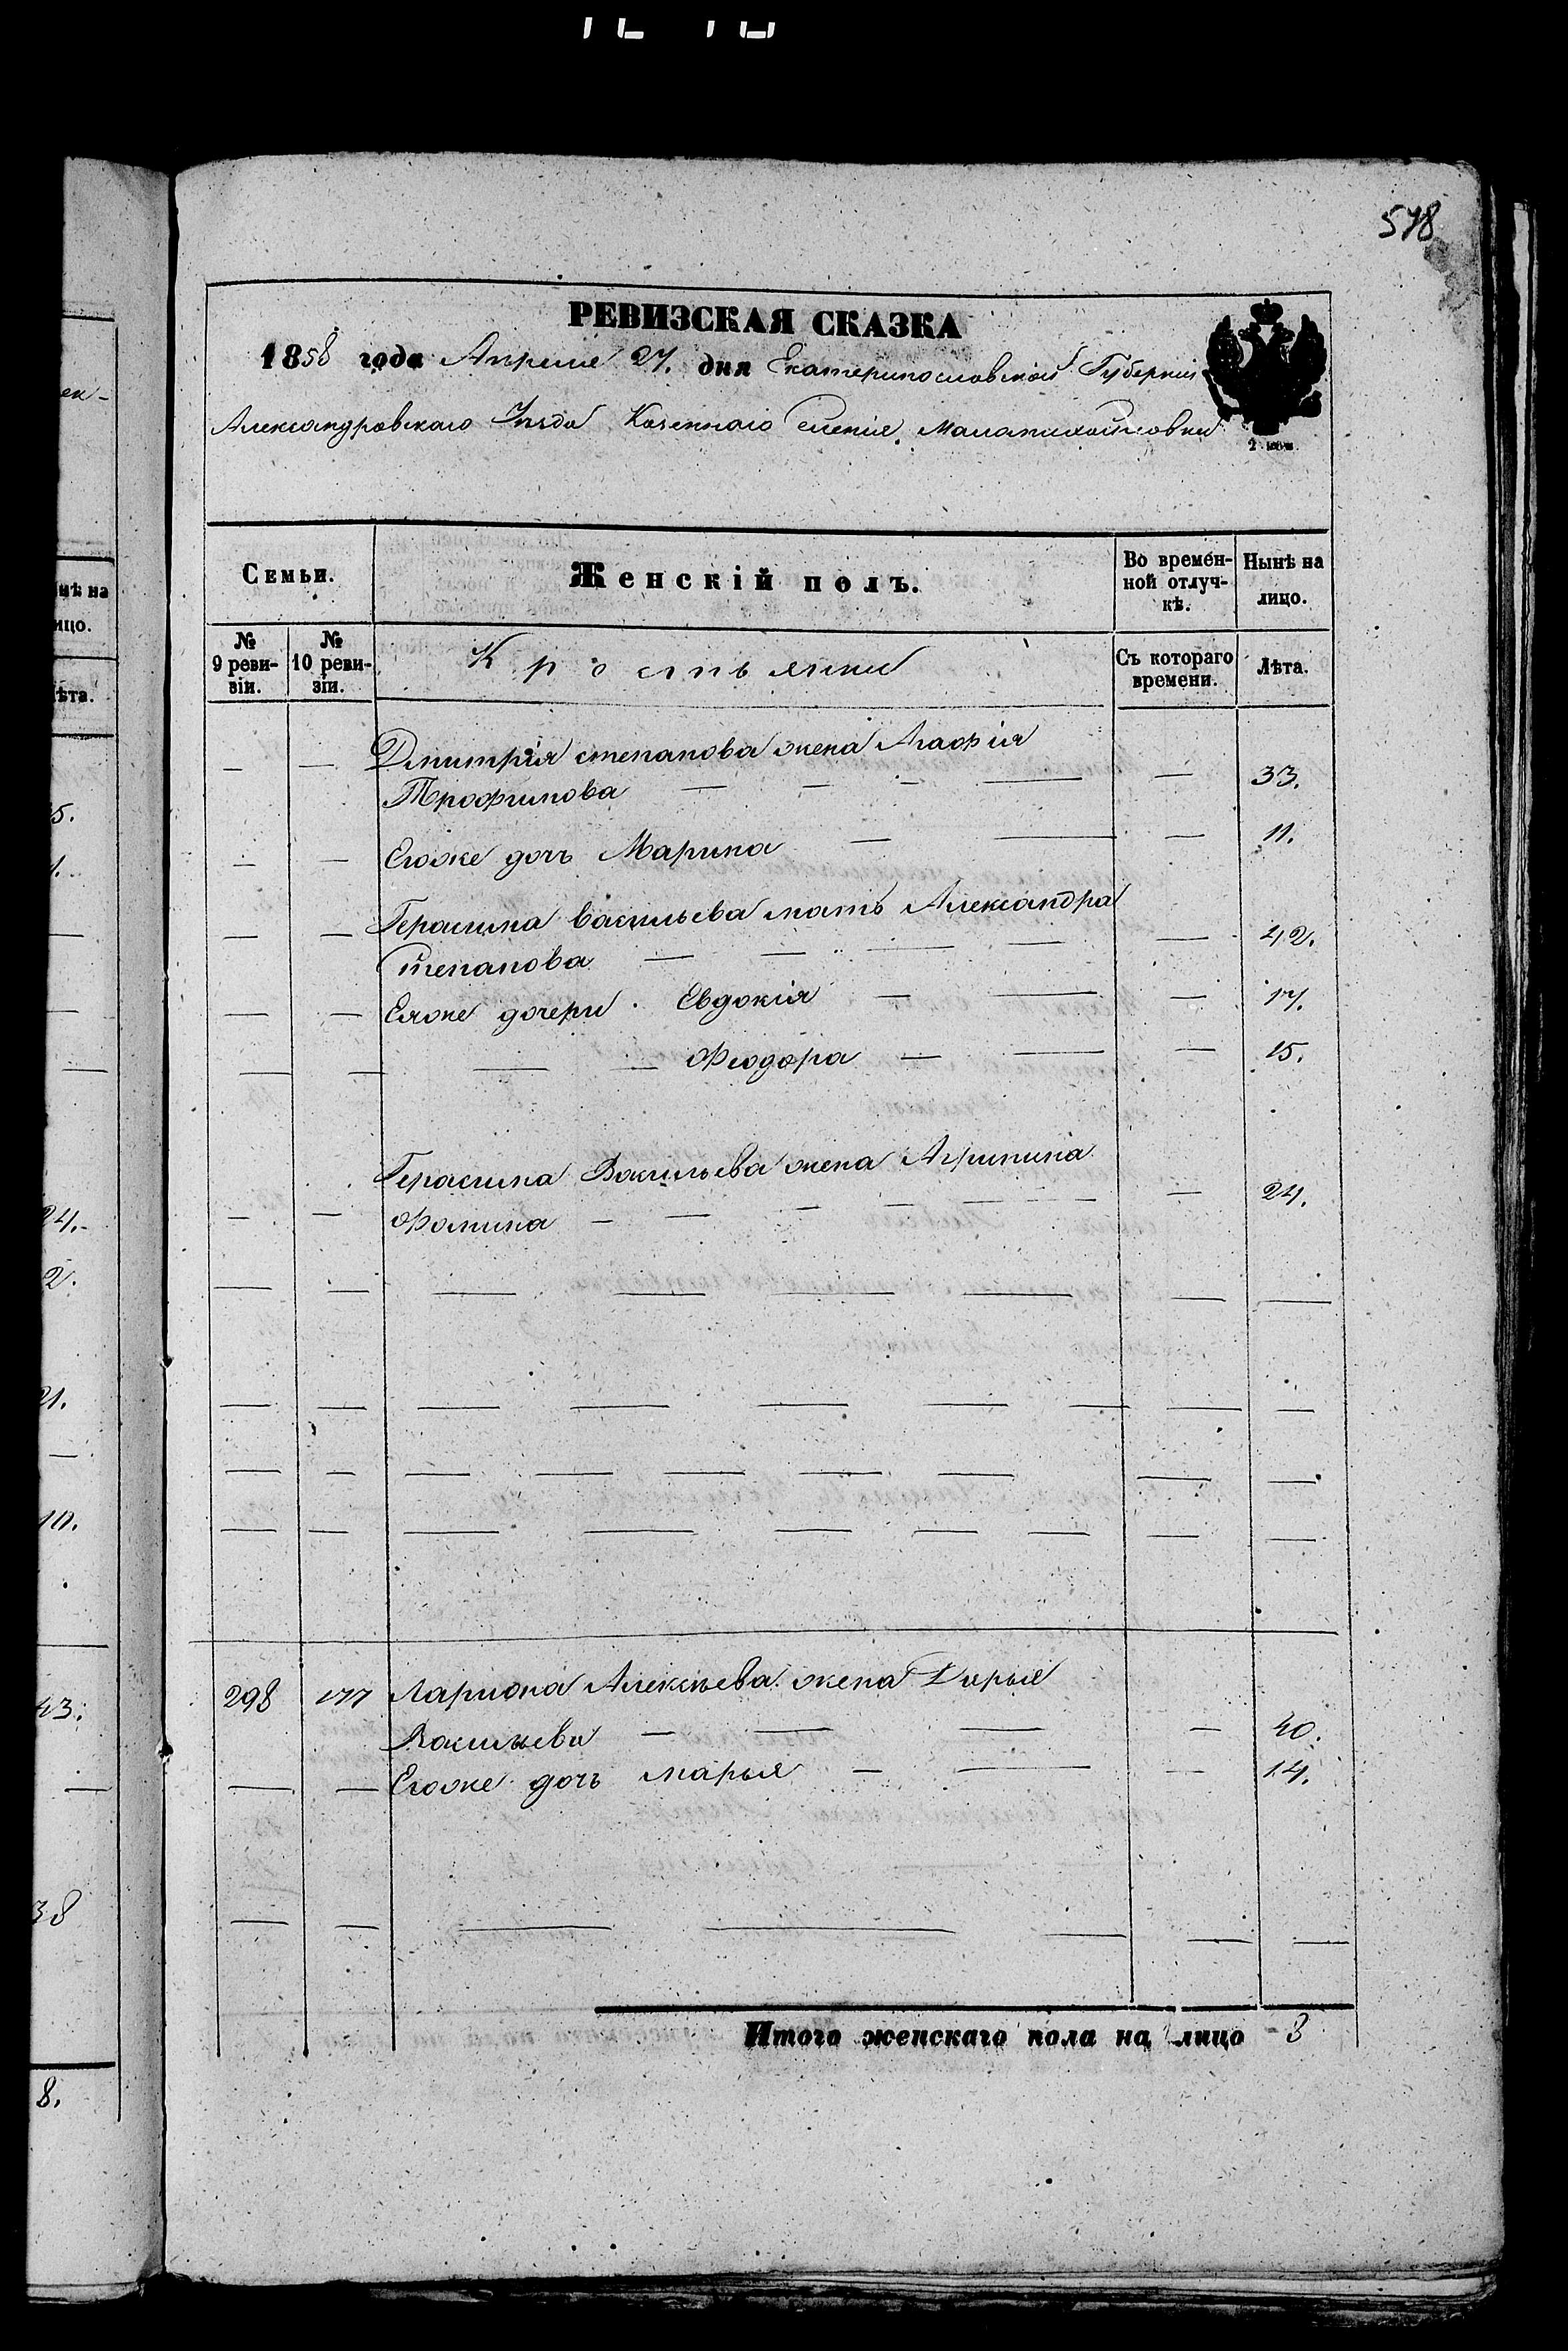 578
РЕВИЗСКАЯ СКАЗКА
1858 года Апреля 27. дня Екатеринославской Губернии
Александровскаго Уезда Казеннаго селения Маломихайловки
2 коп.
Семьи.
Женскій полъ.
Во времен-
ной отлуч-
кѣ.
Нынѣ на
лицо.
№
9 реви-
зіи.
№
10 реви-
зіи.
Крестьянки
Съ котораго
времени.
Лѣта.
— — Дмитрия степанова жена Агафія
Трофимова — — — — — 33.
— — Егоже дочь Марина — — — 11.
— — Герасима васильева мать Александра
Степанова — — — — — 42.
— — Еяже дочери Евдокія — — — 17.
— — — — Феодора — — — 15.
Герасима Васильева жена Агрипина
— — Фомина — — — — — — 24.
298 177 Лариона Алексѣева жена Дарья
Васильева — — — — 40.
— — Егоже дочь марья — — — 14.
Итого женскаго пола на лицо 8
нѣ на
ицо.
ѣта.
5.
1.
24.
2.
21.
10.
43.
38
8.